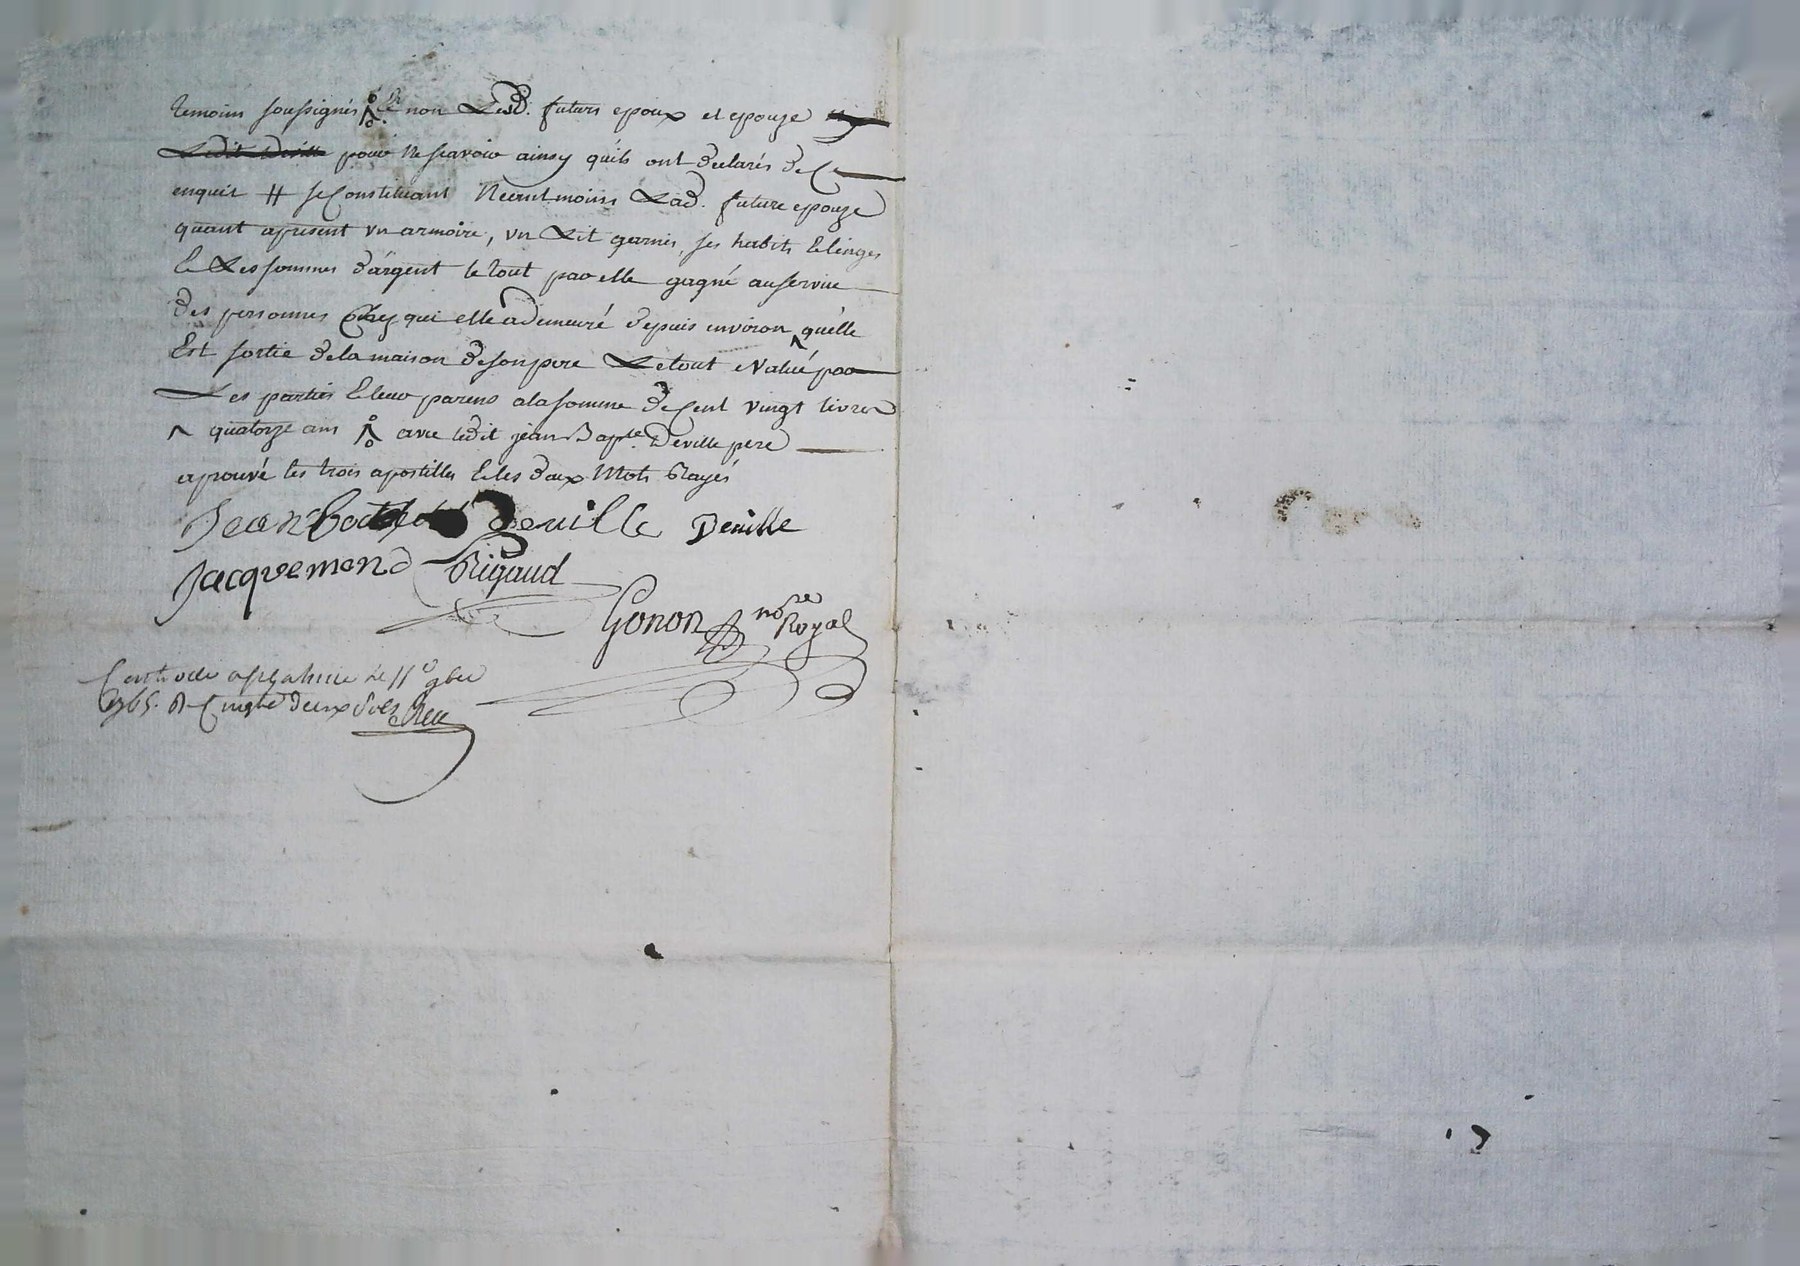 temoins soussignés & non Lesd. futurs epoux et epouze ny
Ledit deville pour ne scavoir ainsy quils ont declarés de ce
enquis # se Constituant Neantmoins Lad. future epouze
quant apresent vn armoire, vn Lit garnis, ses habits & linges
& Les sommes d'argent le tout par elle gagné au service
des personnes Chez qui elle a demeuré depuis environ ^ quélle
Est sortie de la maison de son pere Le tout evalué par
Les parties & leur parens a la somme de Cent vingt livres
^ quatorze ans avec ledit jean Bapte. Deville pere
aprouvé les trois apostilles & les deux Mots Rayés
Jean Deville Deville
Jacquemond Rigaud
Gonon nore Royal
Controlé a le 11e 9bre
1765. R Cinq deux sols